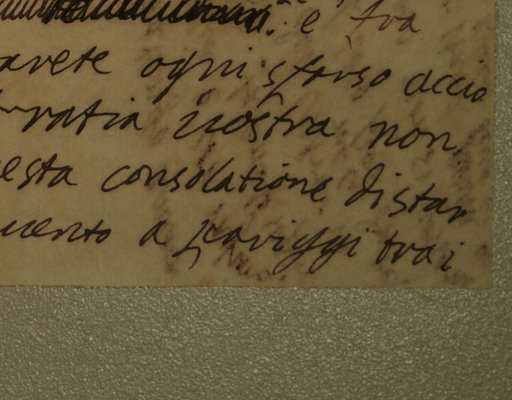 e fra
avete ogni sforso accio
gratia vostra non
esta consolatione di star
mento a parigi trai